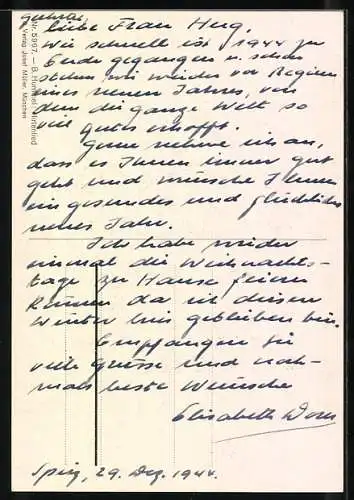 Liebe Frau Hug,
Wie schnell ist 1944 zu
Ende gegangen u. schon
stehen wir wieder vor Beginn
eines neuen Jahres, von
dem die ganze Welt so
viel Gutes erhofft.
Gerne nehme ich an,
dass es Ihnen immer gut
geht und wünsche Ihnen
ein gesundes und glückliches
neues Jahr.
Ich habe wieder
einmal die Weihnachts-
tage zu Hause feiern
können da ich diesen
Winter hier geblieben bin.
Empfangen Sie
viele Grüsse und noch-
mals beste Wünsche
Elisabeth
Spiez, 29. Dez. 1944.
Nr. 5967. — B. Hummel: Hirtenlied
Verlag Josef Müller, München